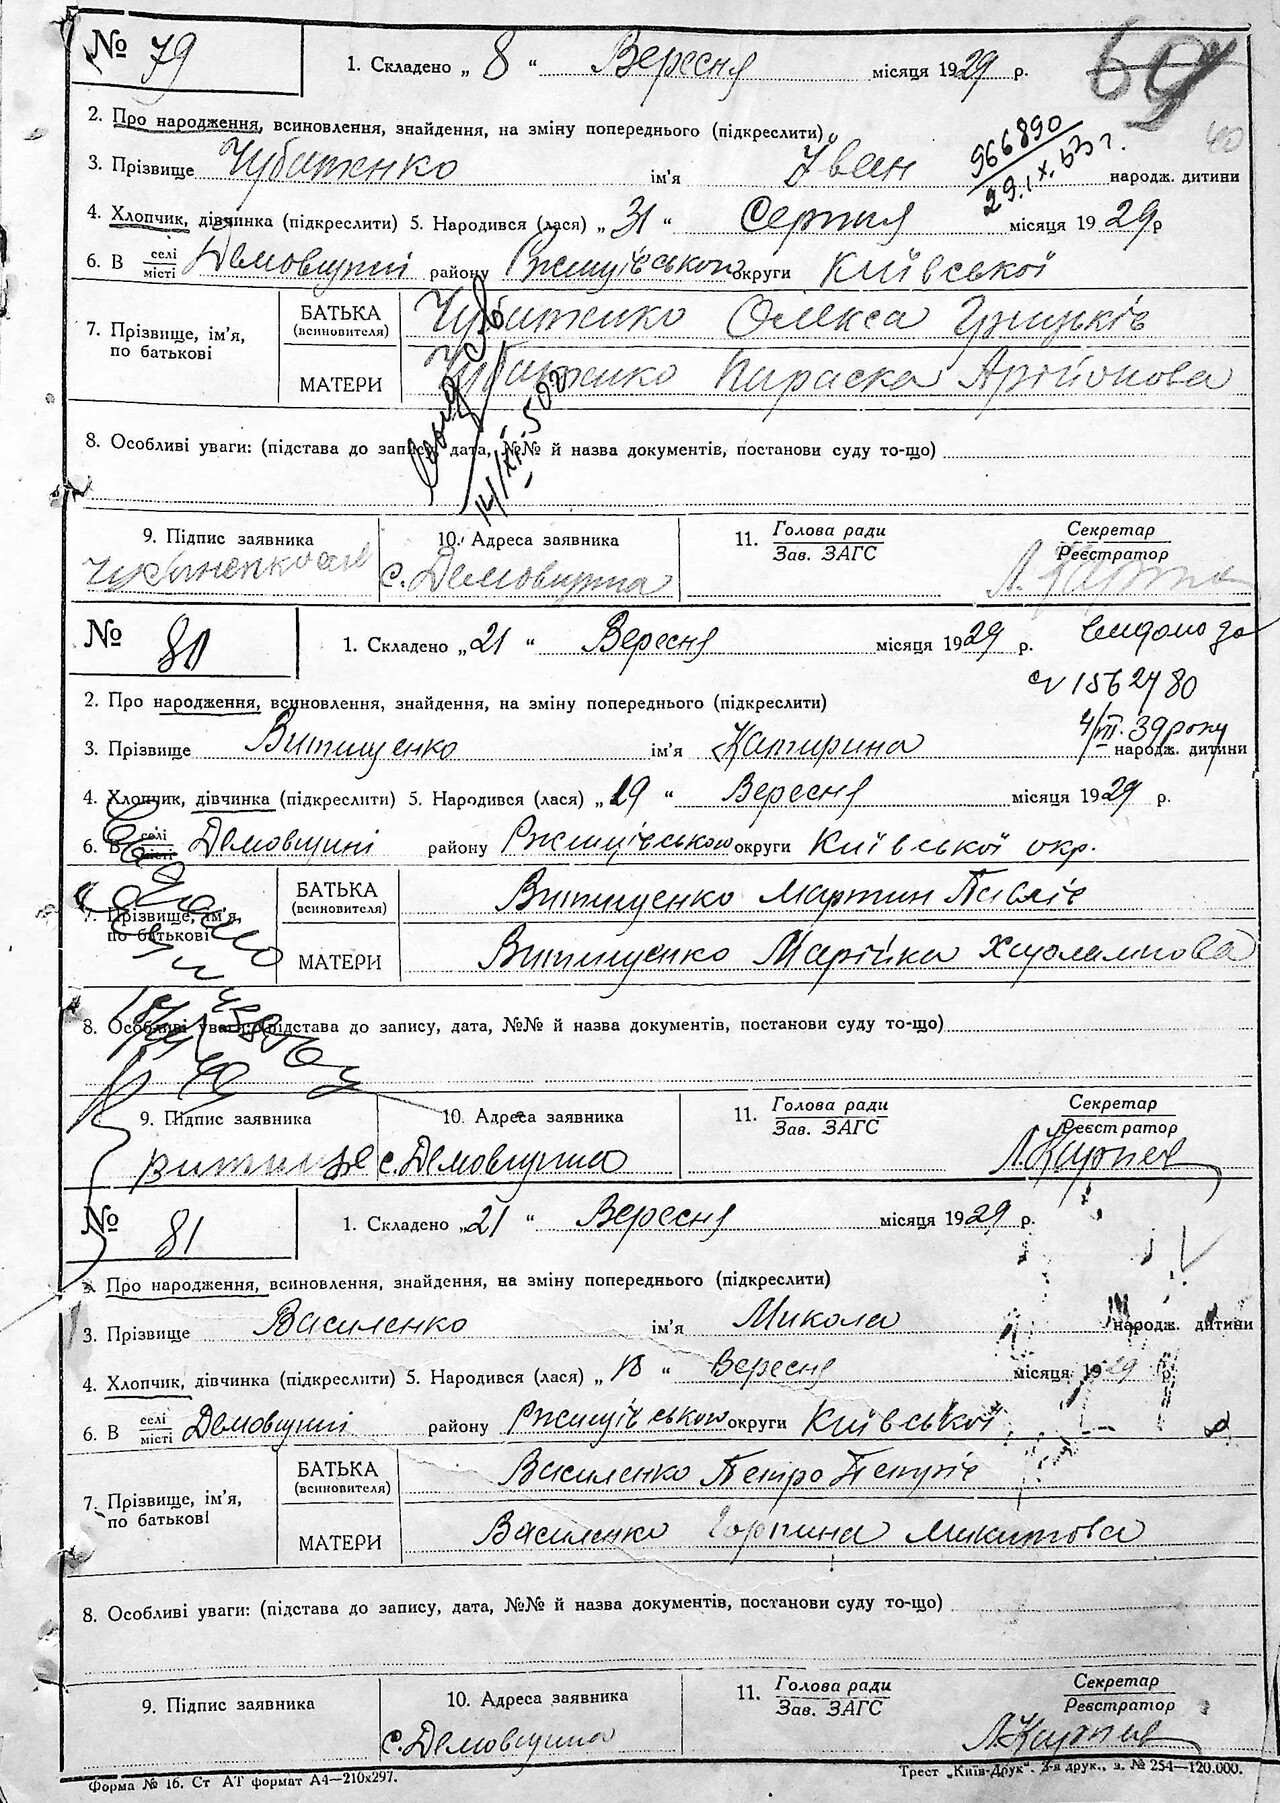 № 79
69
1. Складено „ 8 “ Вересня місяця 1929 р.
40
2. Про народження, всиновлення, знайдення, на зміну попереднього (підкреслити)
966890
29.IX.53 г.
3. Прізвище Чубатенко ім'я Іван народж. дитини
4. Хлопчик, дівчинка (підкреслити) 5. Народився (лася) „ 31 “ Серпня місяця 1929 р
6. В селі/місті Демовщині району Ржищівського округи Київської
7. Прізвище, ім'я, по батькові
БАТЬКА (всиновителя) Чубатенко Олекса Грицьків
МАТЕРИ Чубатенко Параска
14/XI-50
8. Особливі уваги: (підстава до запису, дата, №№ й назва документів, постанови суду то-що)
9. Підпис заявника
10. Адреса заявника с. Демовщина
11. Голова ради / Зав. ЗАГС
Секретар / Реєстратор
№ 80
1. Складено „ 21 “ Вересня місяця 1929 р.
№ 1562480
4/III. 39 року
2. Про народження, всиновлення, знайдення, на зміну попереднього (підкреслити)
3. Прізвище Витищенко ім'я Катирина народж. дитини
4. Хлопчик, дівчинка (підкреслити) 5. Народився (лася) „ 19 “ Вересня місяця 1929 р.
6. В селі/місті Демовщині району Ржищівського округи Київської окр.
7. Прізвище, ім'я, по батькові
БАТЬКА (всиновителя) Витищенко Мартин Павлів
МАТЕРИ Витищенко Марійка Харлампова
8. Особливі уваги: (підстава до запису, дата, №№ й назва документів, постанови суду то-що)
9. Підпис заявника
10. Адреса заявника с. Демовщина
11. Голова ради / Зав. ЗАГС
Секретар / Реєстратор
№ 81
1. Складено „ 21 “ Вересня місяця 1929 р.
2. Про народження, всиновлення, знайдення, на зміну попереднього (підкреслити)
3. Прізвище Василенко ім'я Микола народж. дитини
4. Хлопчик, дівчинка (підкреслити) 5. Народився (лася) „ 18 “ Вересня місяця 1929 р.
6. В селі/місті Демовщині району Ржищівського округи Київської
7. Прізвище, ім'я, по батькові
БАТЬКА (всиновителя) Василенко Петро
МАТЕРИ Василенко Горпина Микитова
8. Особливі уваги: (підстава до запису, дата, №№ й назва документів, постанови суду то-що)
9. Підпис заявника
10. Адреса заявника с. Демовщина
11. Голова ради / Зав. ЗАГС
Секретар / Реєстратор
Форма № 16. Ст АТ формат А4—210х297.
Трест „Київ-Друк“. 3-я друк., з. № 254—120.000.